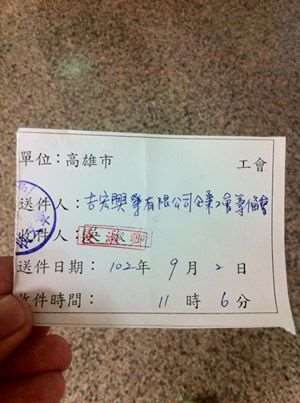 單位：高雄市 工會
送件人：吉宏興業有限公司企業工會籌備會
收件人：
送件日期：102年 9月 2日
收件時間： 11時 6分